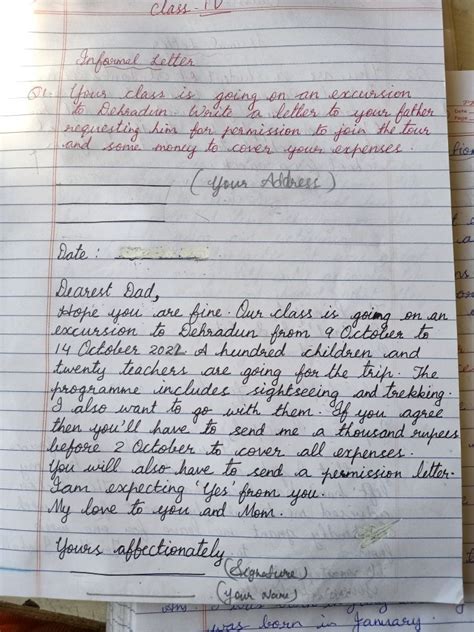 Class - IV
Informal Letter
Q1. Your class is going on an excursion
to Dehradun. Write a letter to your father
requesting him for permission to join the tour
and some money to cover your expenses.
(Your Address)
Date :
Dearest Dad,
Hope you are fine. Our class is going on an
excursion to Dehradun from 9 October to
14 October 2021. A hundred children and
twenty teachers are going for the trip. The
programme includes sightseeing and trekking.
I also want to go with them. If you agree
then you'll have to send me a thousand rupees
before 2 October to cover all expenses.
You will also have to send a permission letter.
I am expecting 'Yes' from you.
My love to you and Mom.
Yours affectionately
(Signature)
(Your Name)
was born in January.